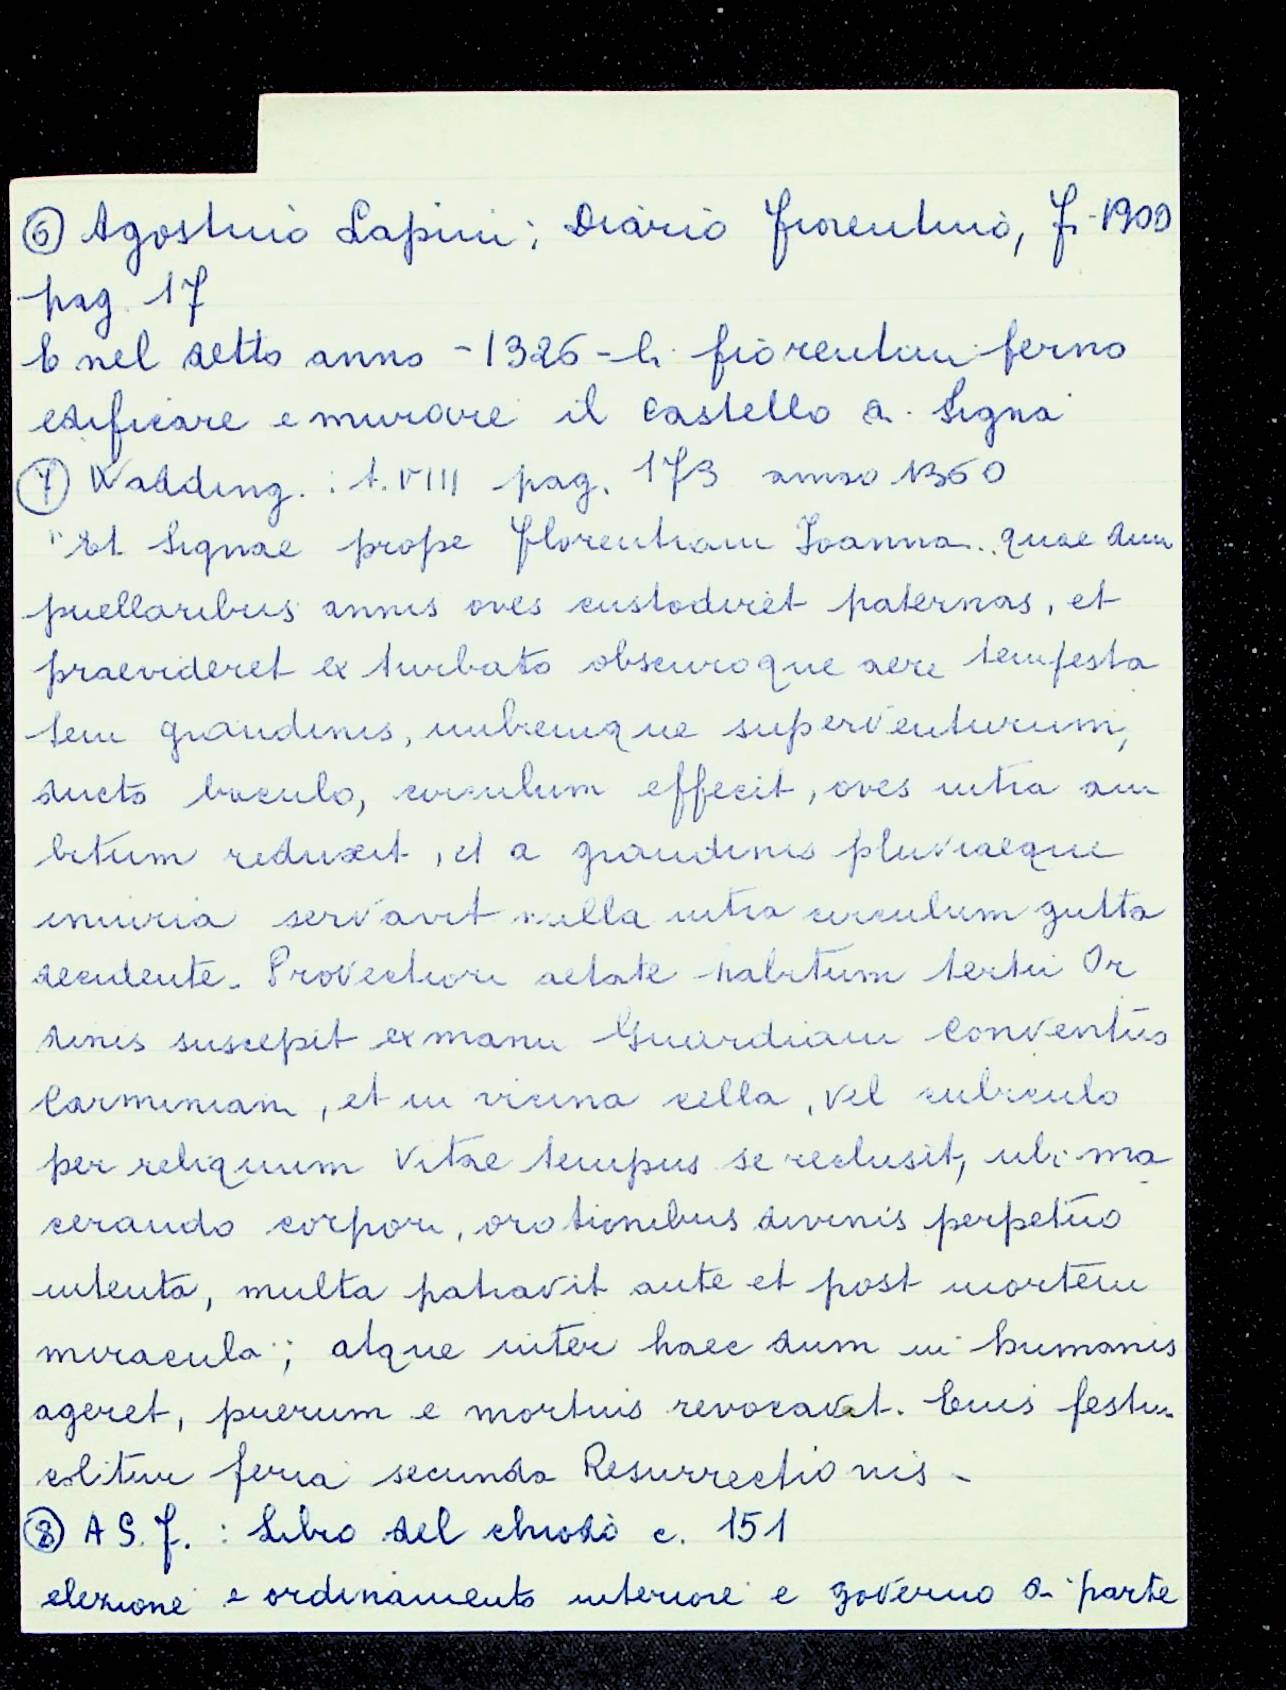 ⑥ Agostino Lapini: Diario fiorentino, F. 1900
pag. 17
E nel detto anno - 1326 - li fiorentini ferno
edificare e murare il castello di Signa
⑦ Wadding. : t. VIII pag. 173 anno 1360
"Et Signae prope Florentiam Joanna.. quae dum
puellaribus annis oves custodiret paternas, et
praevideret ex turbato obscuroque aere tempesta
tem grandinis, imbremque superventurum,
ducto baculo, circulum effecit, oves intra am
bitum reduxit, et a grandinis pluviaeque
iniuria servavit nulla intra circulum gutta
decidente. Provectiori aetate habitum tertii Or
dinis suscepit ex manu Guardiani Conventus
Carminiani, et in vicina cella, vel cubiculo
per reliquum vitae tempus se reclusit, ubi ma
cerando corpori, orationibus divinis perpetuo
intenta, multa patravit ante et post mortem
miracula; atque inter haec dum in humanis
ageret, puerum e mortuis revocavit. Eius festum
colitur feria secunda Resurrectionis -
⑧ A S. F. : Libro del chiodo c. 151
elezione e ordinamento interiore e governo di parte